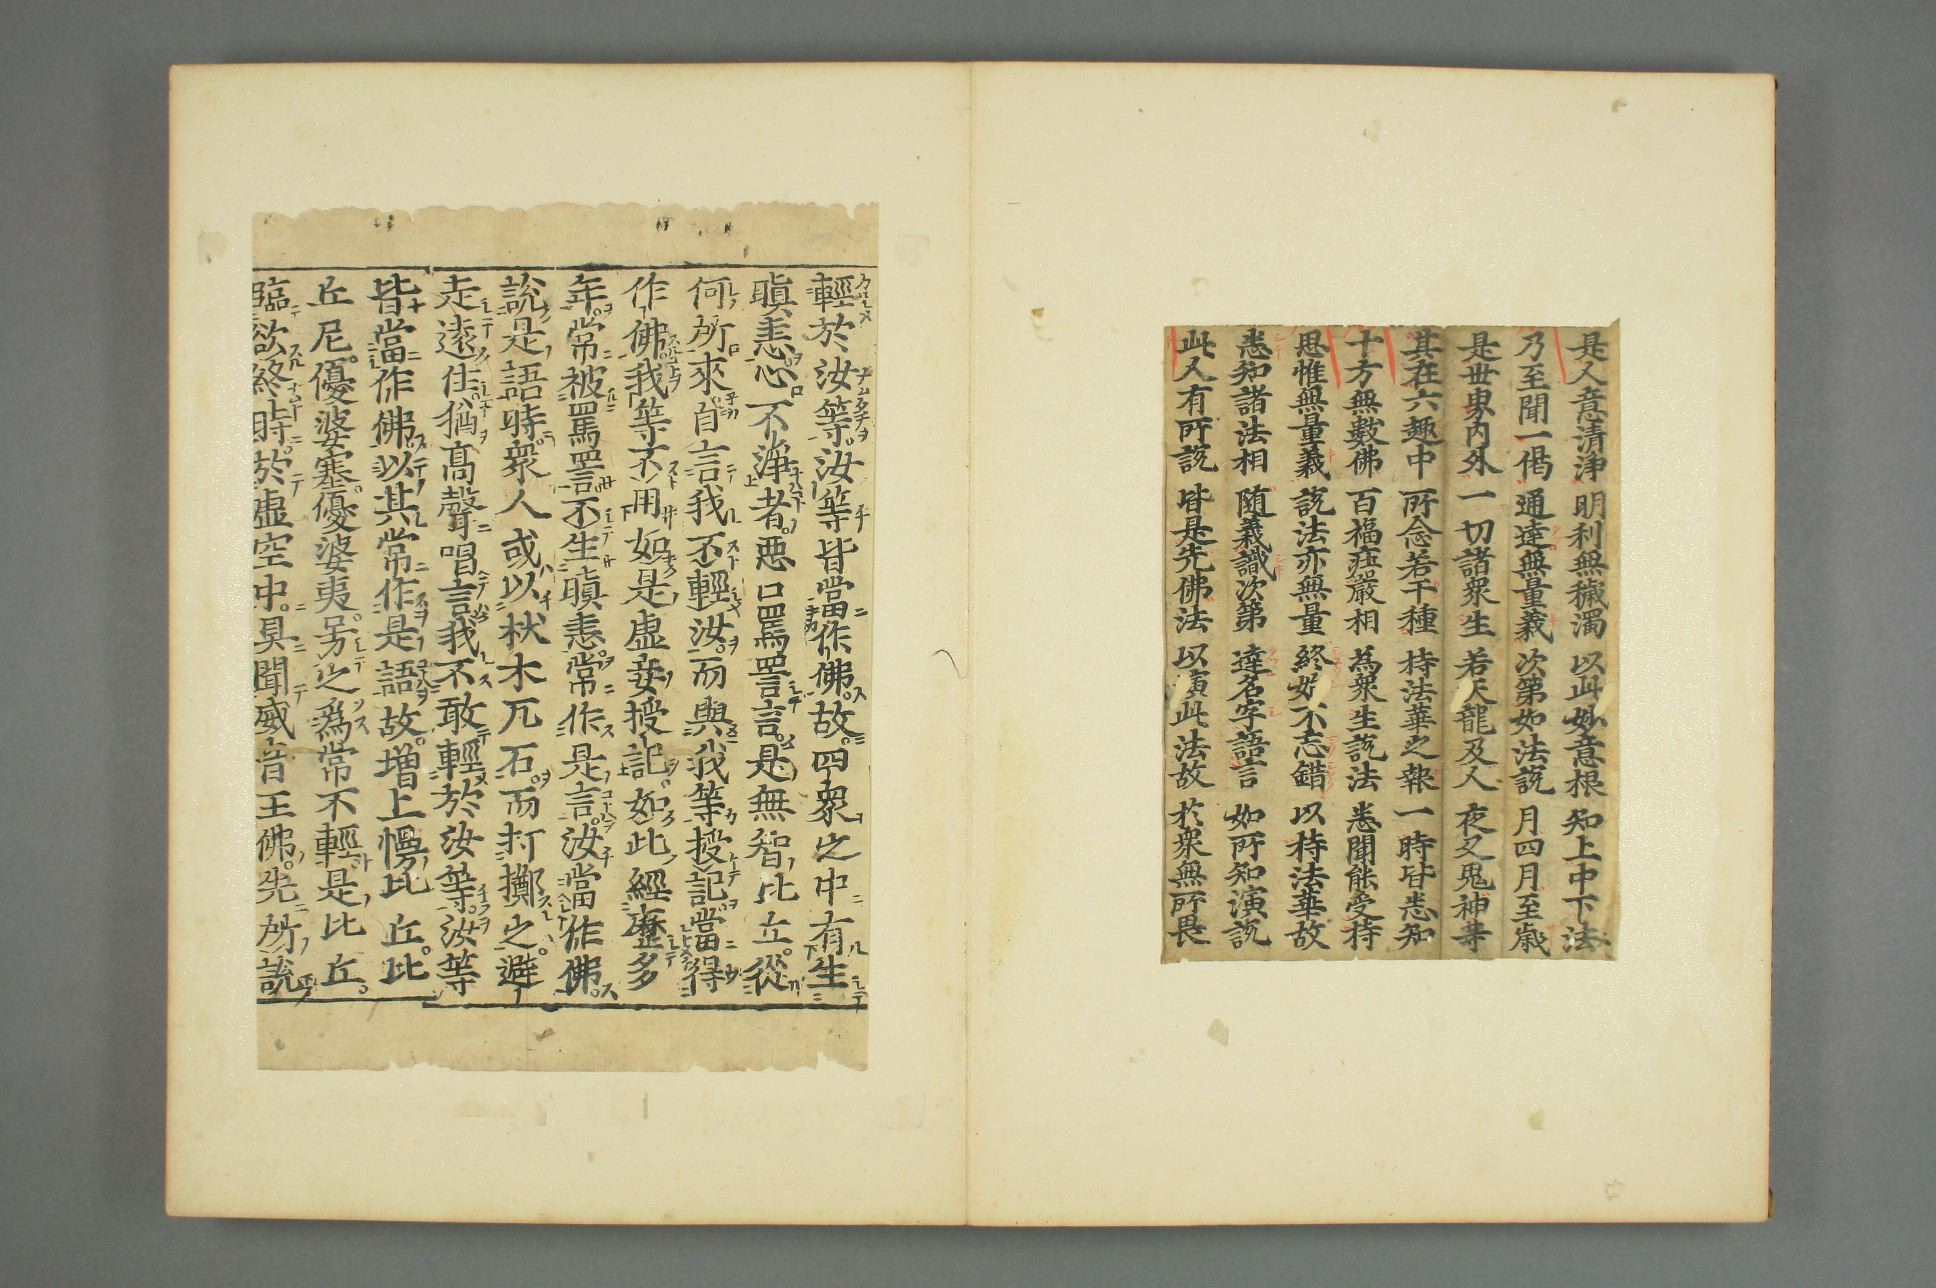 是人意清淨 明利無穢濁 以此妙意根 知上中下法
乃至聞一偈 通達無量義 次第如法說 月四月至歲
是世界内外 一切諸衆生 若天龍及人 夜叉鬼神等
其在六趣中 所念若干種 持法華之報 一時皆悉知
十方無數佛 百福莊嚴相 為衆生說法 悉聞能受持
思惟無量義 說法亦無量 終始不忘錯 以持法華故
悉知諸法相 随義識次第 達名字語言 如所知演說
此人有所說 皆是先佛法 以演此法故 於衆無所畏
輕於汝等汝等皆當作佛故四衆之中有生
瞋恚心不淨者惡口罵詈言是無智比丘從
何所來自言我不輕汝而與我等授記當得
作佛我等不用如是虛妄授記如此經歷多
年常被罵詈不生瞋恚常作是言汝當作佛
說是語時衆人或以杖木瓦石而打擲之避
走遠住猶高聲唱言我不敢輕於汝等汝等
皆當作佛以其常作是語故增上慢比丘比
丘尼優婆塞優婆夷号之爲常不輕是比丘
臨欲終時於虛空中具聞威音王佛先所說